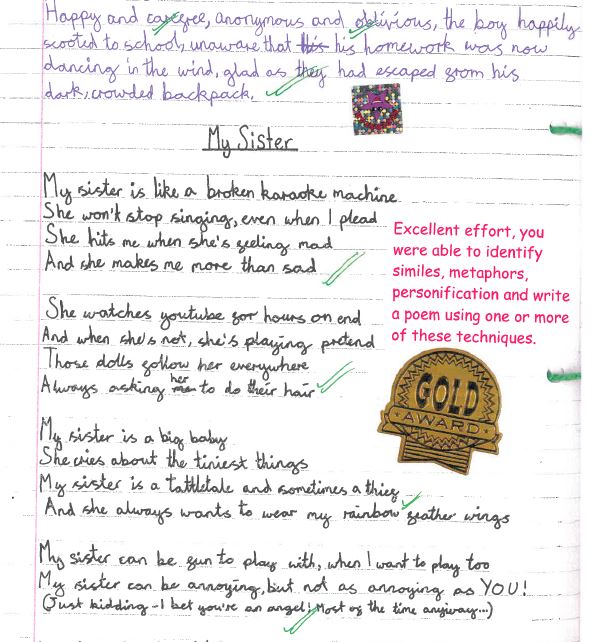 Happy and carefree, anonymous and oblivious, the boy happily
scooted to school, unaware that this his homework was now
dancing in the wind, glad as they had escaped from his
dark, crowded backpack.
My Sister
My sister is like a broken karaoke machine
She won't stop singing, even when I plead
She hits me when she's feeling mad
And she makes me more than sad
Excellent effort, you
were able to identify
similes, metaphors,
personification and write
a poem using one or more
of these techniques.
She watches youtube for hours on end
And when she's not, she's playing pretend
Those dolls follow her everywhere
Always asking her to do their hair
GOLD
AWARD
My sister is a big baby
She cries about the tiniest things
My sister is a tattletale and sometimes a thief
And she always wants to wear my rainbow feather wings
My sister can be fun to play with, when I want to play too
My sister can be annoying, but not as annoying as YOU!
(Just kidding - I bet you're an angel! Most of the time anyway...)